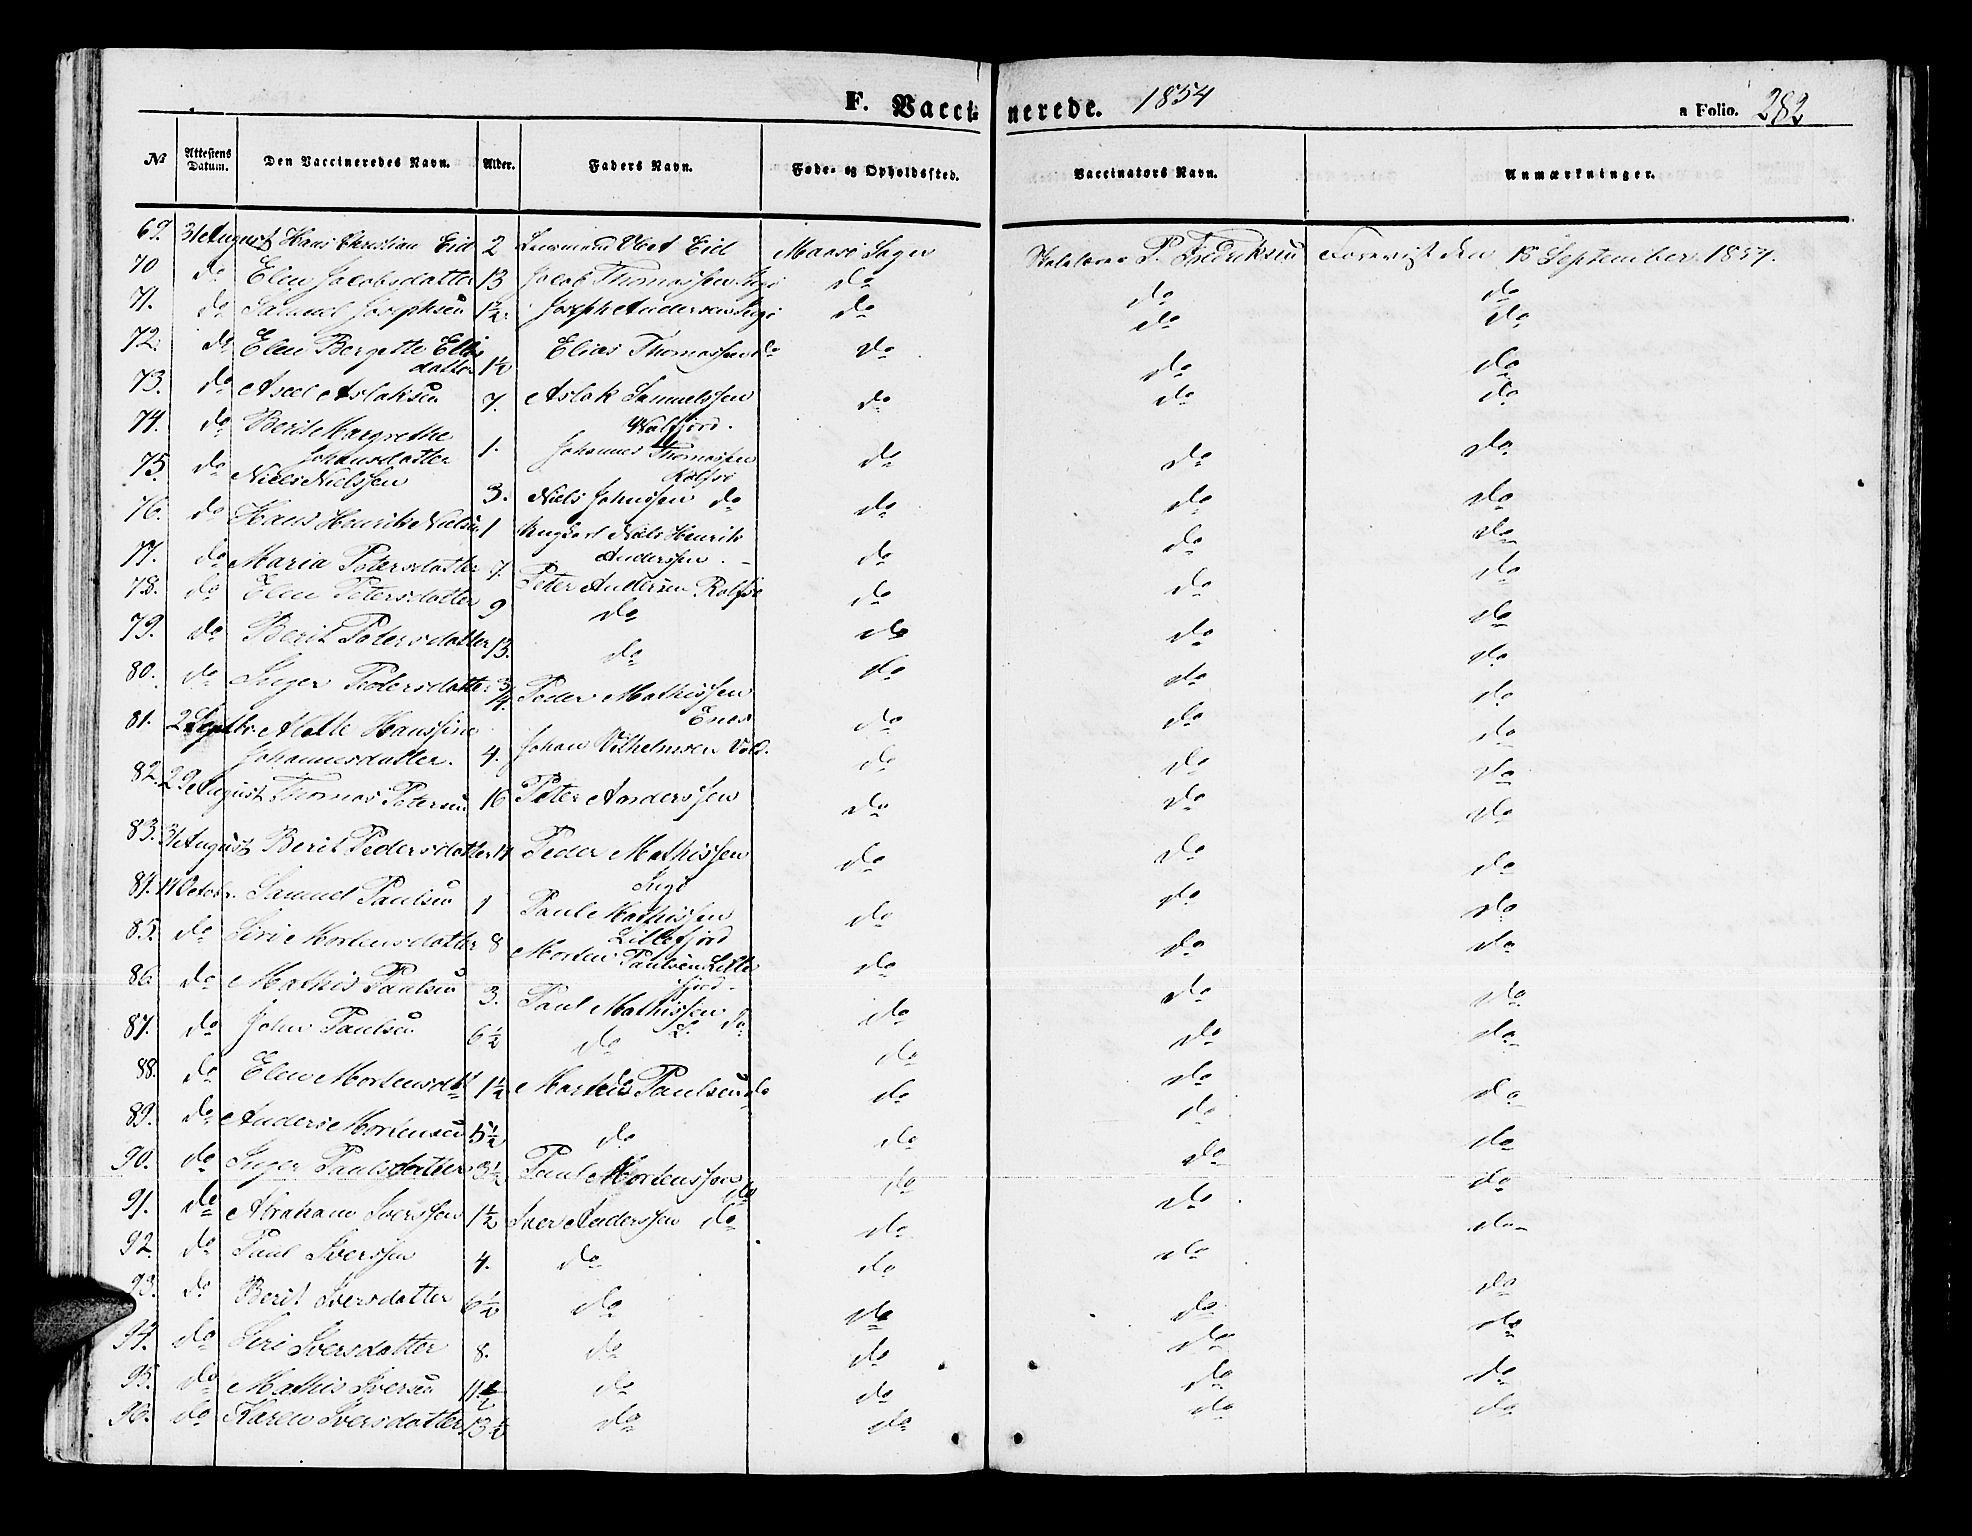 F. Vaccinerede. 1854 a Folio. 282
№ Attestens Datum. Den Vaccineredes Navn. Alder. Faders Navn. Føde- og Opholdssted. Vaccinators Navn. Anmærkninger.
69. 31te August Hans Christian Eid 2 Eid Maasø Sogn P. Fredriksen Foreviist den 18 September 1854.
70 do Elen Jacobsdatter 13 Jacob Thomassen Ingø do do do
71. do Samuel Josephsen 1½ Joseph Andersen Ingø do do do
72. do Elen Bergette Elias
datter 1½ Elias Thomassen do do do do
73. do Axel Aslaksen 7. Aslak Samuelssen
do do do
74. do Berit Margrethe
Johansdatter 1. Johannes Thomassen
Rolfsø do do do
75. do Niels Nielssen 3. Niels Johnssen do do do do
76. do Hans Henrik Nielsen 1 Niels Henrik
Anderssen do do do
77. do Maria Petersdatter 7. Peter Andersen Rolfsø do do do
78. do Elen Petersdatter 9 do do do do
79. do Berit Petersdatter 13. do do do do
80. do Inger Pedersdatter ¾ Peder Mathissen
do do do
81. 2 Septbr Hanssine
Johannesdatter. 4. Johan Vilhelmsen do do do
82. 29 August Thomas Petersen 16 Peter Anderssen do do do
83. 31 August Berit Pedersdatter 11 Peder Mathissen
Ingø do do do
84. 14 Octobr. Samuel Paulsen 1 Paul Mathissen
Lillefjord do do do
85. do Siri Mortensdatter 8 Morten Paulsen Lille
fjord do do do
86. do Mathis Paulsen 3. Paul Mathissen
L. do do do do
87. do John Paulsen 6½ do do do do
88. do Elen Mortensdtt 1½ Paulsen do do do do
89. do Anders Mortensen 5½ do do do do
90. do Inger Paulsdatter 3½ Paul Mortenssen
do do do do
91. do Abraham Iverssen 1½ Iver Anderssen do do do do
92. do Paul Iverssen 4. do do do
93. do Berit Iversdatter 6½ do do do do
94. do Siri Iversdatter 8. do do do do
95. do Mathis Iversen 11½ do do do do
96. do Karen Iversdatter 13½ do do do do